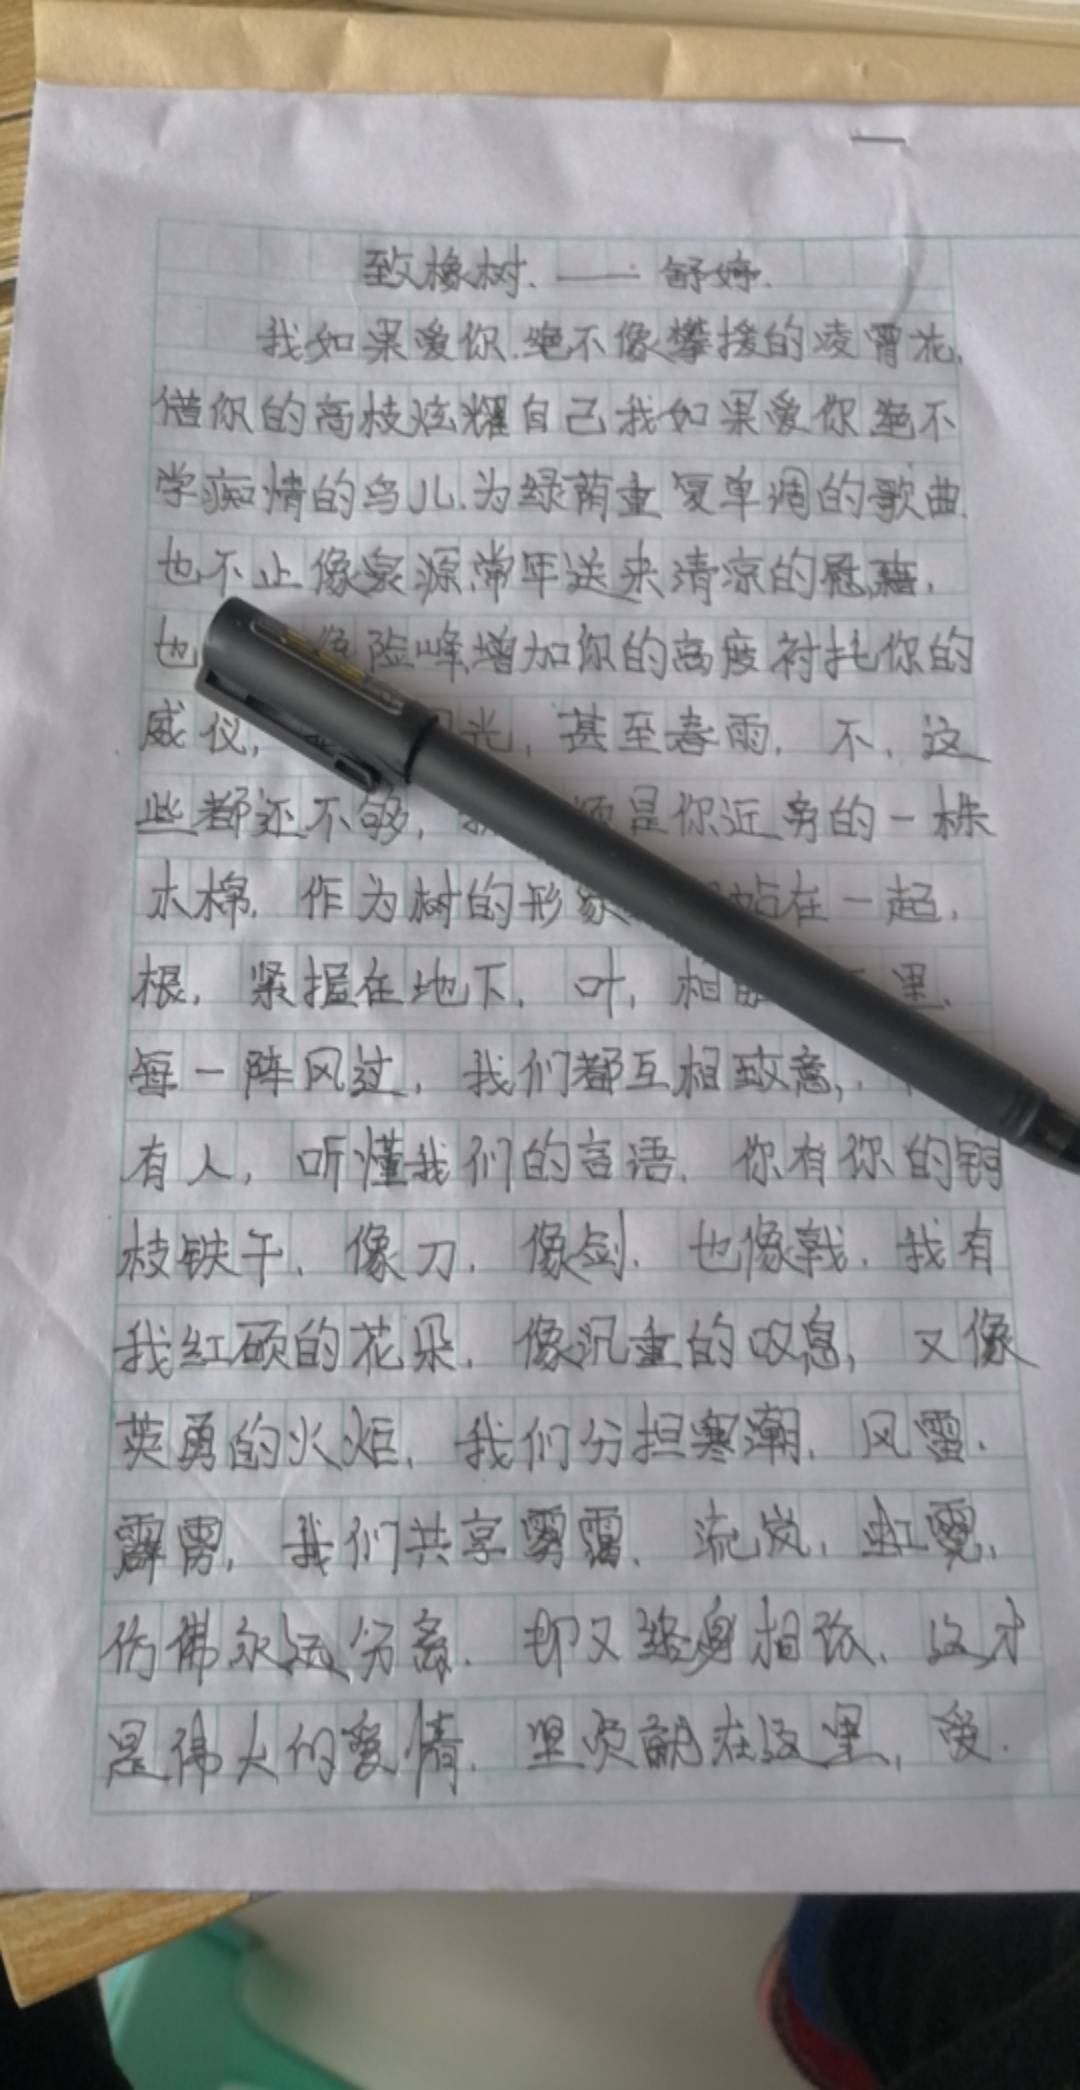 致橡树. —— 舒婷.
我如果爱你.绝不像攀援的凌霄花.
借你的高枝炫耀自己我如果爱你绝不
学痴情的鸟儿.为绿荫重复单调的歌曲.
也不止像泉源.常年送来清凉的慰藉.
也 像险峰.增加你的高度衬托你的
威仪, 日光, 甚至春雨. 不, 这
些都还不够, 须是你近旁的一株
木棉. 作为树的形象 站在一起.
根, 紧握在地下. 叶, 相 里.
每一阵风过, 我们都互相致意,
有人, 听懂我们的言语. 你有你的铜
枝铁干. 像刀. 像剑. 也像戟. 我有
我红硕的花朵. 像沉重的叹息, 又像
英勇的火炬. 我们分担寒潮. 风雷.
霹雳, 我们共享雾霭. 流岚, 虹霓.
仿佛永远分离. 却又终身相依. 这才
是伟大的爱情. 坚贞就在这里, 爱.